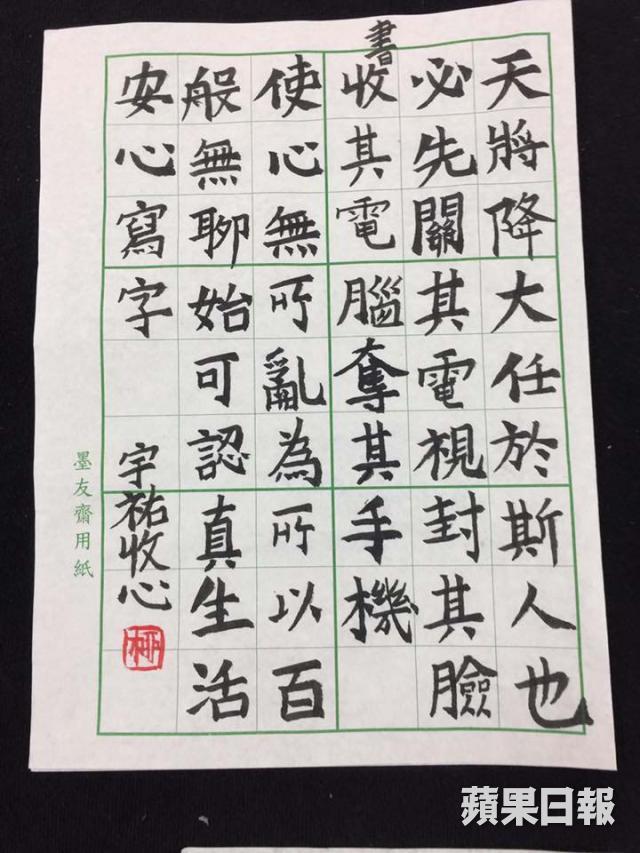 天將降大任於斯人也
必先關其電視封其臉
書收其電腦奪其手機
使心無所亂為所以百
般無聊始可認真生活
安心寫字
宇祐收心
墨友齋用紙
蘋果日報